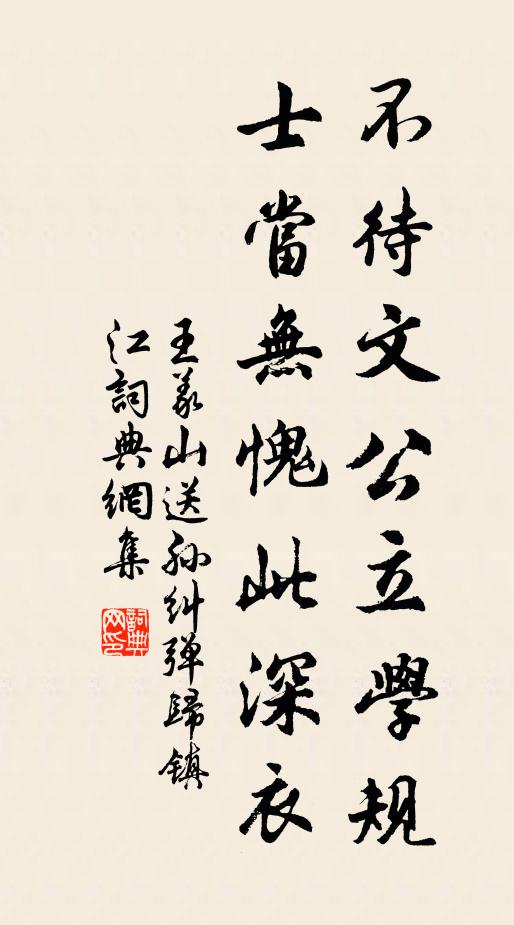 不待文公立學規
士當無愧此深衣
王義山送孫糾彈歸鎮
江詞典網集
詞典
网印